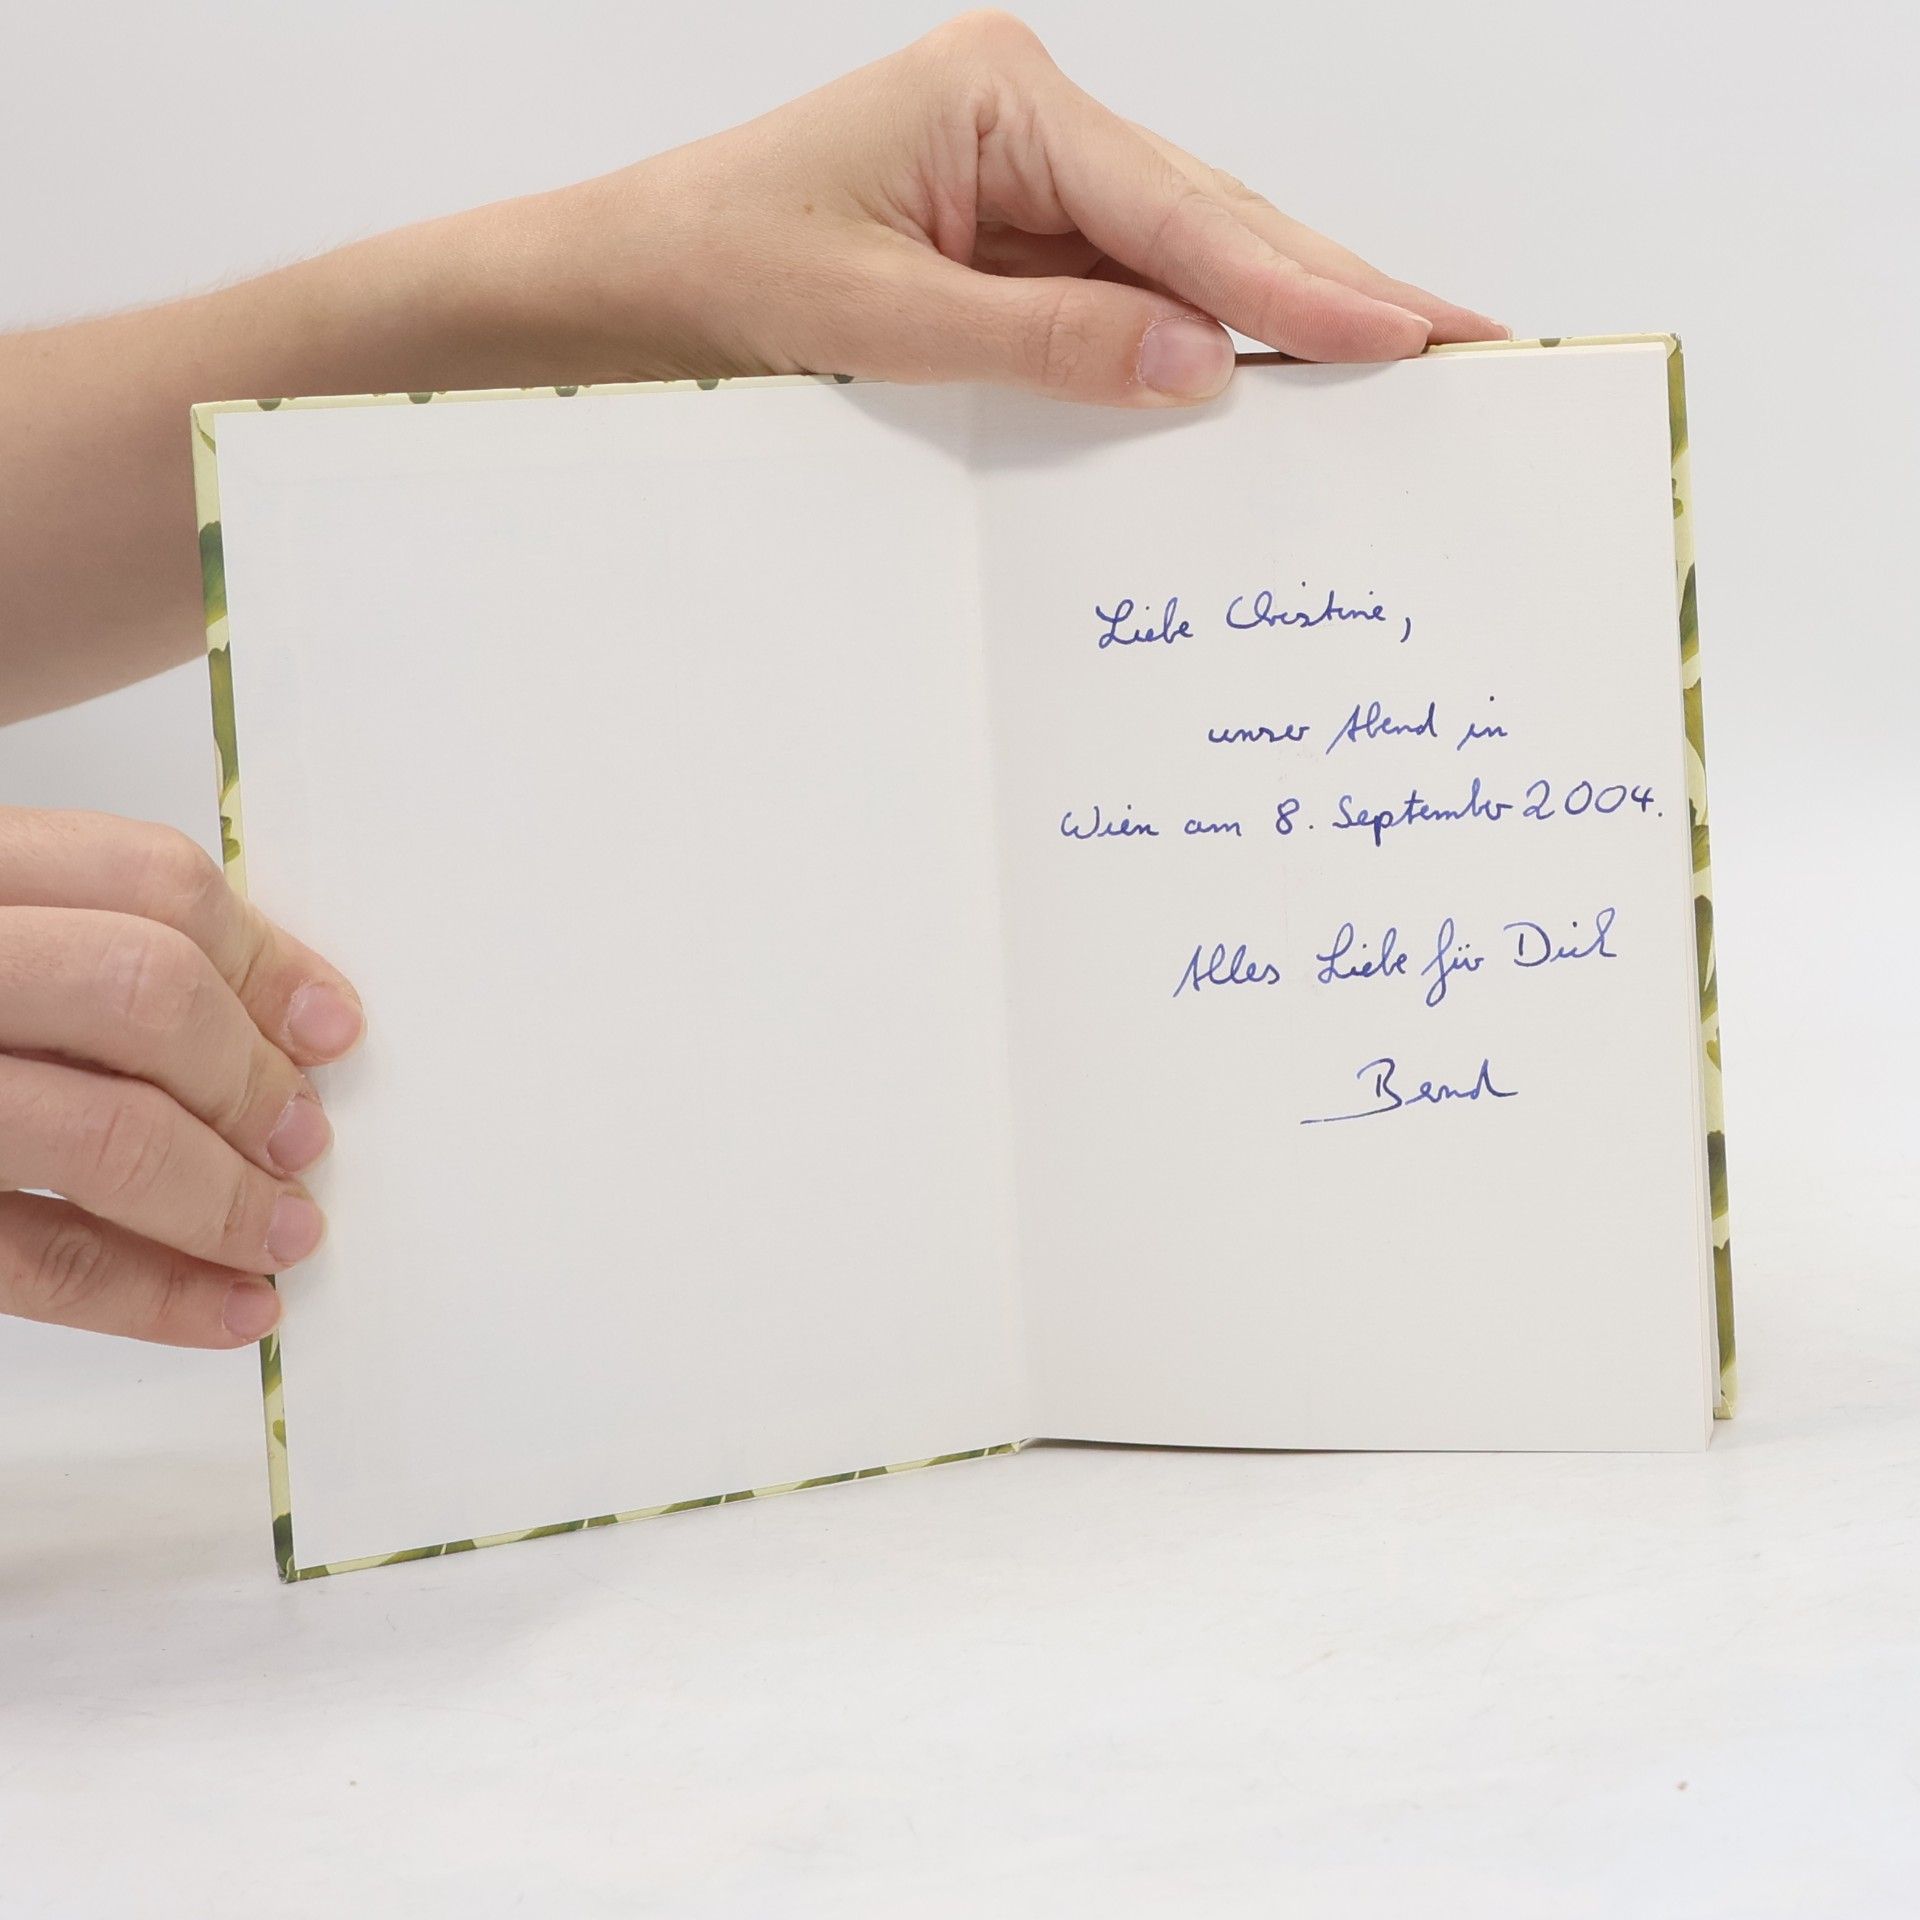 Liebe Christine,
unser Abend in
Wien am 8. September 2004.
Alles Liebe für Dich
Bernd